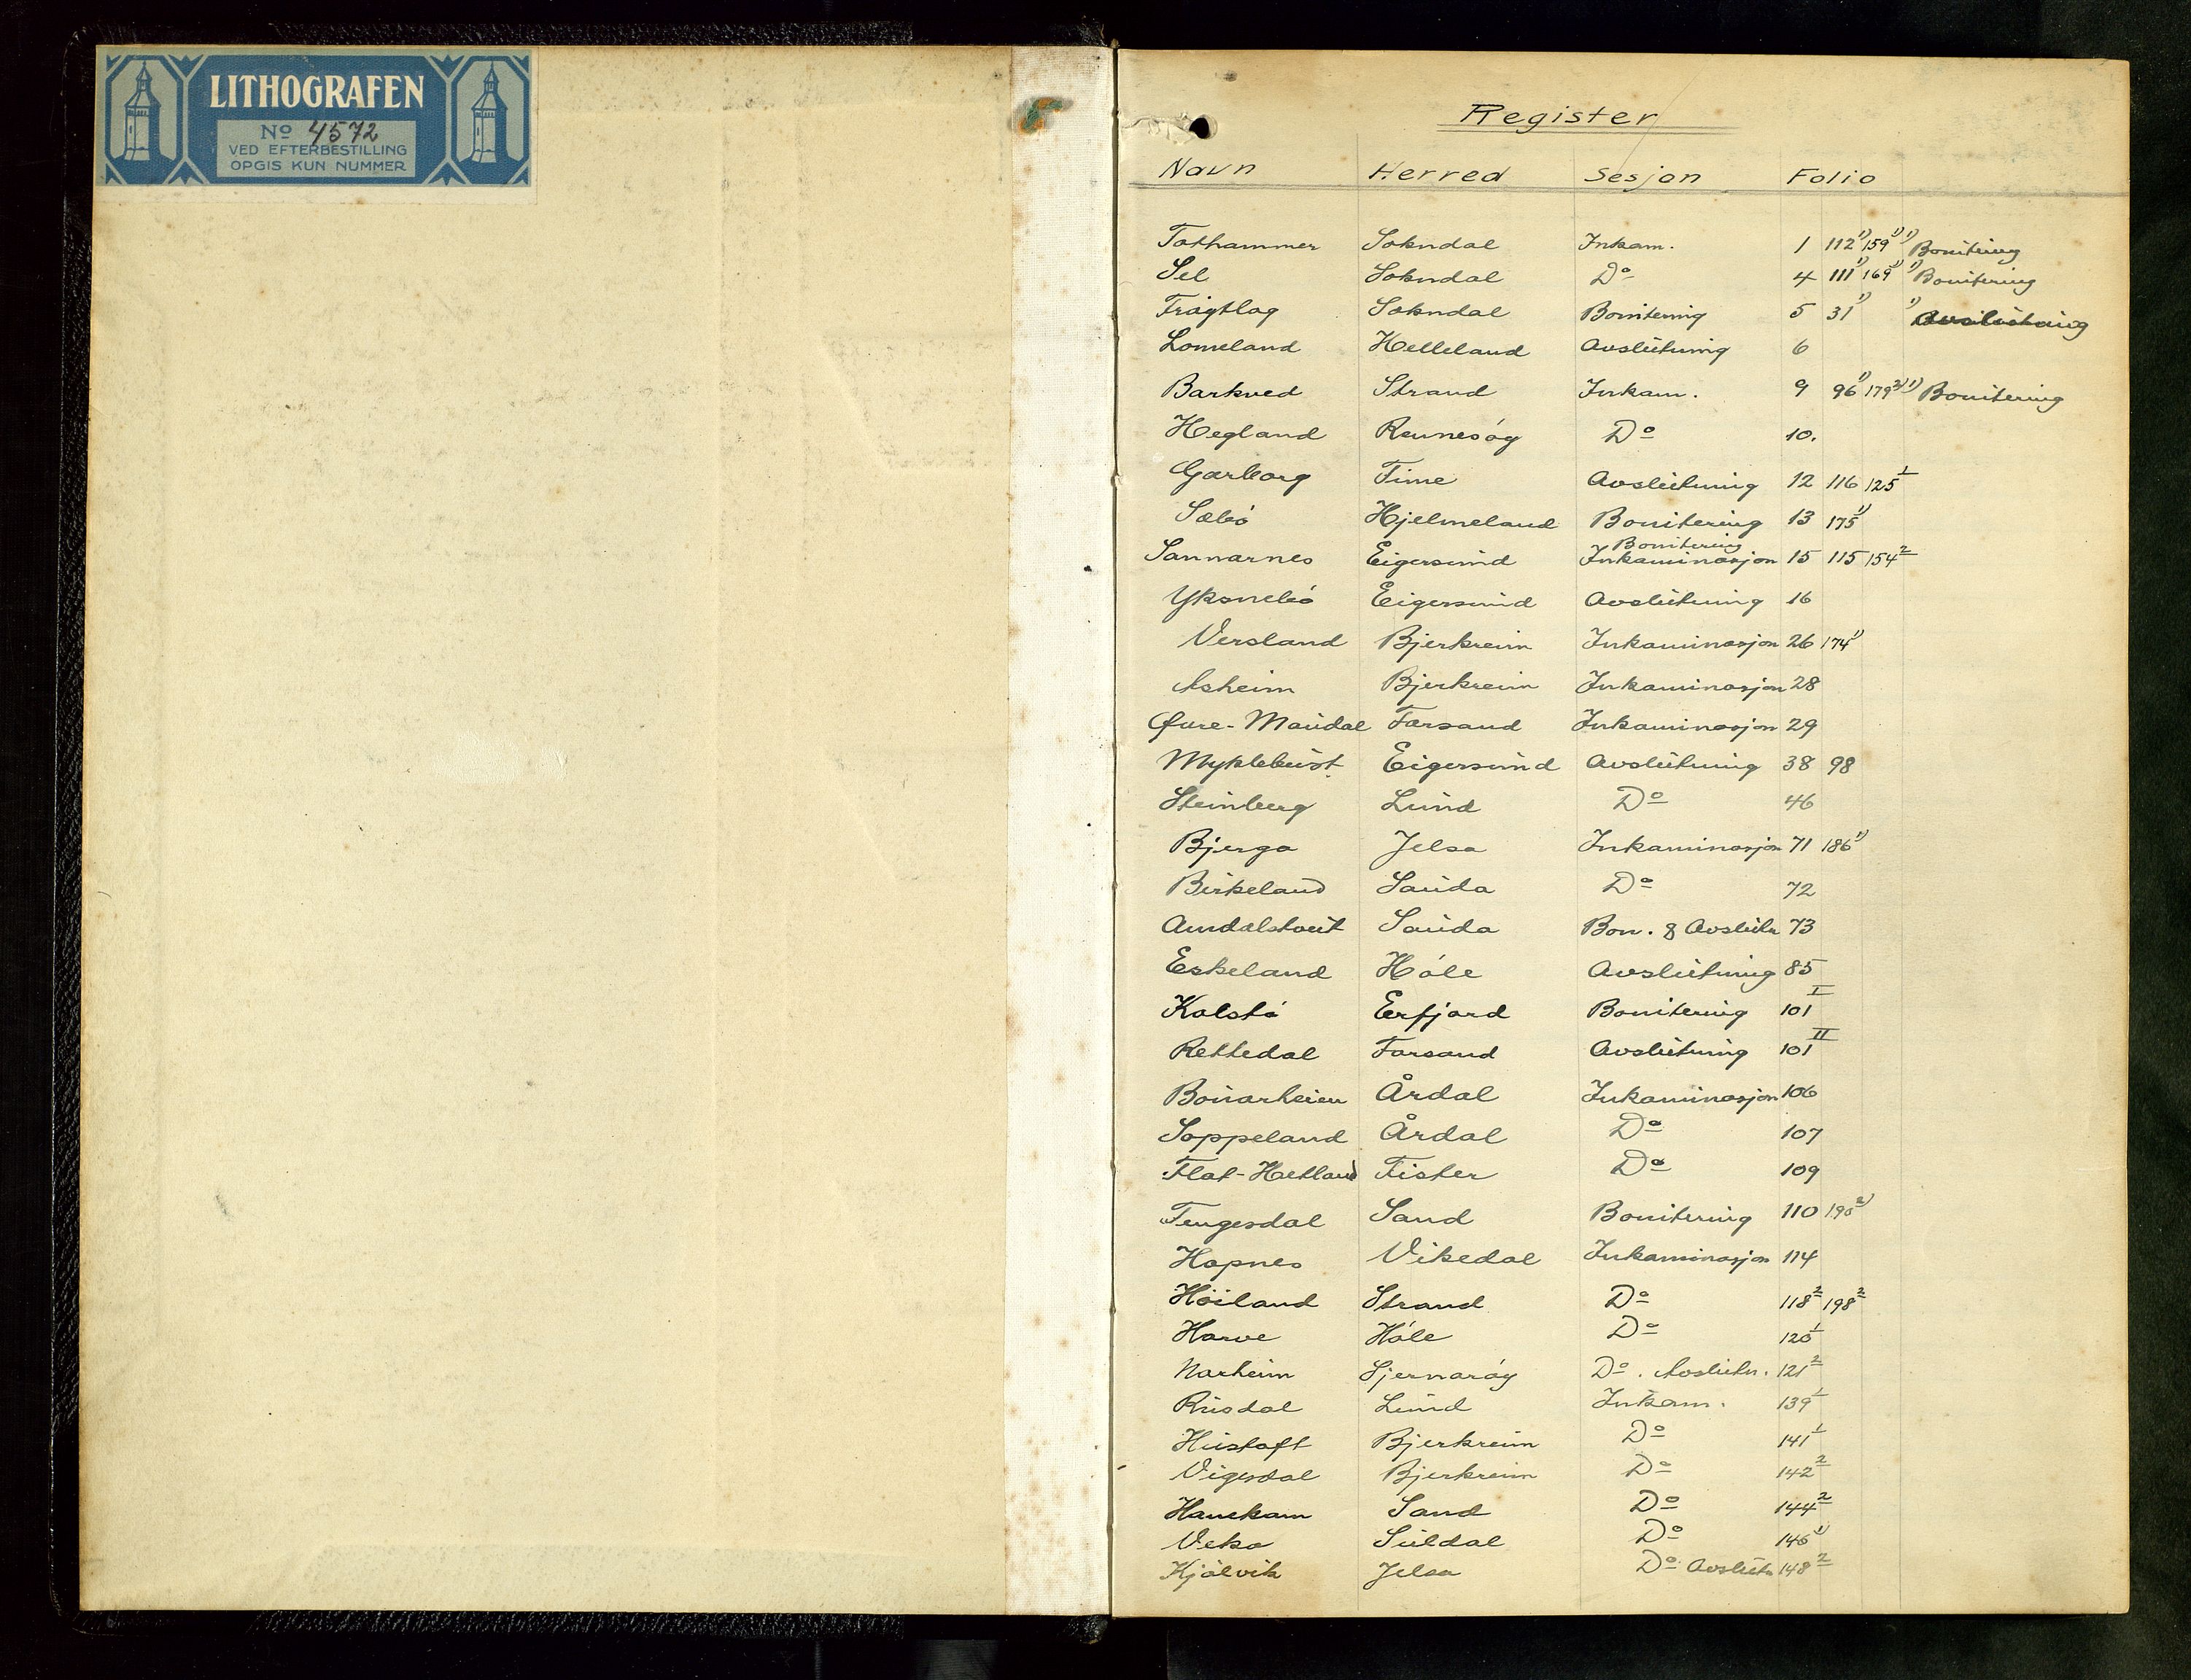 LITHOGRAFEN
No 4572
VED EFTERBESTILLING
OPGIS KUN NUMMER
Register
Navn Herred Sesjon Folio
Tothammer Sokndal Inkam. 1 112 1) 159 1) 1) Bonitering
Sel Sokndal Do 4 111 1) 169 1) 1) Bonitering
Frågtlog Sokndal Bonitering 5 31 1) 1)
Lomeland Helleland Avslutning 6
Barkved Strand Inkam. 9 96 1) 179 2) 1) Bonitering
Hegland Rennesøy Do 10.
Garborg Time Avslutning 12 116 125 1
Sæbø Hjelmeland Bonitering 13 175 1)
Bonitering
Sannarnes Eigersund Inkaminasjon 15 115 154 2
Yksnebø Eigersund Avslutning 16
Versland Bjerkreim Inkaminasjon 26 174 1)
Asheim Bjerkreim Inkaminasjon 28
Øvre-Maudal Forsand Inkaminasjon 29
Myklebust Eigersund Avslutning 38 98
Steinberg Lund Do 46
Bjerga Jelsa Inkaminasjon 71 186 1)
Birkeland Sauda Do 72
Amdalstveit Sauda Bon. & Avslutn 73
Eskeland Høle Avslutning 85
Kolstø Erfjord Bonitering 101 I
Rettedal Forsand Avslutning 101 II
Boiarheien Årdal Inkaminasjon 106
Soppeland Årdal Do 107
Flat-Hetland Fister Do 109
Tengesdal Sand Bonitering 110 190 2)
Hopnes Vikedal Inkaminasjon 114
Høiland Strand Do 118 2 198 2
Harve Høle Do 120 1
Narheim Sjernarøy Do. Avslutn. 121 2
Risdal Lund Inkam. 139 1
Hustoft Bjerkreim Do 141 1
Vigesdal Bjerkreim Do 142 2
Hanekam Sand Do 144 2
Veka Suldal Do 146 1)
Kjølvik Jelsa Do Avslutn 148 2